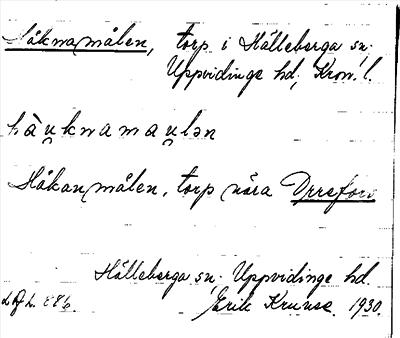 Håknamålen, torp i Hälleberga sn.
Uppvidinge hd, Kron. l.
hàu̯knamau̯lən
Håkanmålen, torp nära Orrefors
Hälleberga sn. Uppvidinge hd.
Erik Kruuse. 1930.